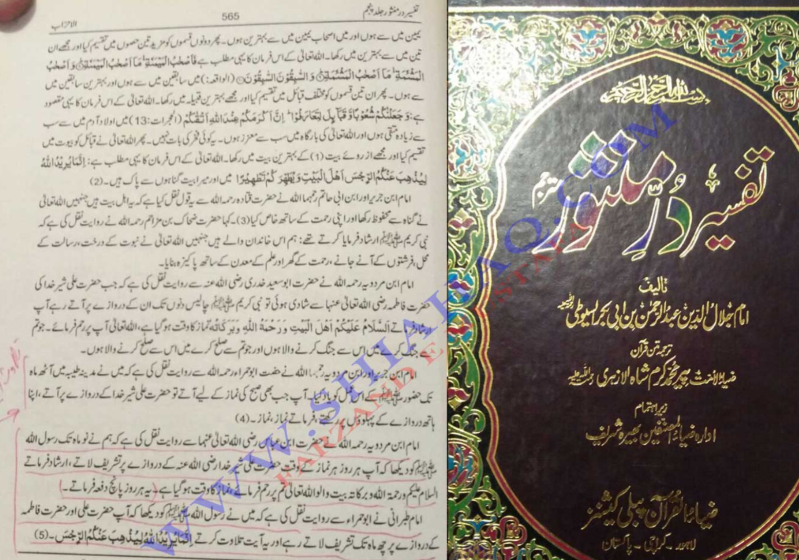 الاحزاب
565
تفسیر در منثور جلد پنجم
یمین میں سے ہوں اور میں اصحاب یمین میں سے بہترین ہوں۔ پھر دونوں قسموں کو مزید تین حصوں میں تقسیم کیا اور مجھے ان
تین میں سے بہترین میں رکھا۔ اللہ تعالیٰ کے اس فرمان کا یہی مطلب ہے فَأَصْحٰبُ الْمَيْمَنَةِ مَا أَصْحٰبُ الْمَيْمَنَةِ وَأَصْحٰبُ
الْمَشْـَٔمَةِ مَا أَصْحٰبُ الْمَشْـَٔمَةِ وَالسّٰبِقُوْنَ السّٰبِقُوْنَ (الواقعہ) میں سابقین میں سے ہوں اور میں بہترین سابقین میں
سے ہوں۔ پھر ان تین قسموں کو مختلف قبائل میں تقسیم کیا اور مجھے بہترین قبیلہ میں رکھا۔ اللہ تعالیٰ کے اس فرمان کا یہی مقصود
ہے: وَجَعَلْنٰكُمْ شُعُوْبًا وَّقَبَآئِلَ لِتَعَارَفُوْا اِنَّ اَكْرَمَكُمْ عِنْدَ اللّٰهِ اَتْقٰىكُمْ (الحجرات:13) میں اولاد آدم میں سے سب
سے زیادہ متقی ہوں اور اللہ تعالیٰ کی بارگاہ میں سب سے معزز ہوں۔ یہ کوئی فخر کی بات نہیں۔ پھر اللہ تعالیٰ نے قبائل کو بیوت میں
تقسیم کیا اور مجھے از روئے بیت (1) کے بہترین بیت میں رکھا۔ اللہ تعالیٰ کے اس فرمان کا یہی مطلب ہے: اِنَّمَا يُرِيْدُ اللّٰهُ
لِيُذْهِبَ عَنْكُمُ الرِّجْسَ اَهْلَ الْبَيْتِ وَيُطَهِّرَكُمْ تَطْهِيْرًا میں اور میرا بیت گناہوں سے پاک ہیں۔ (2)
امام ابن جریر اور ابن ابی حاتم رحمہما اللہ نے حضرت قتادہ رحمہ اللہ سے یہ قول نقل کیا ہے کہ یہ اہل بیت ہیں جنہیں اللہ تعالیٰ
نے گناہ سے محفوظ رکھا اور اپنی رحمت کے ساتھ خاص کیا (3)۔ کہا حضرت ضحاک بن مزاحم رحمہ اللہ نے روایت نقل کی ہے کہ
نبی کریم ﷺ ارشاد فرمایا کرتے تھے: ہم اس خاندان والے ہیں جنہیں اللہ تعالیٰ نے نبوت کے درخت، رسالت کے
محل، فرشتوں کے آنے جانے، رحمت کے گھر اور علم کے معدن کے ساتھ پاکیزہ بنایا۔
امام ابن مردویہ رحمہ اللہ نے حضرت ابو سعید خدری رضی اللہ تعالیٰ عنہ سے روایت نقل کی ہے کہ جب حضرت علی شیر خدا کی
حضرت فاطمہ رضی اللہ تعالیٰ عنہا سے شادی ہوئی تو نبی کریم ﷺ چالیس دنوں تک ان کے دروازے پر آتے رہے آپ
ارشاد فرماتے اَلسَّلَامُ عَلَيْكُمْ اَهْلَ الْبَيْتِ وَرَحْمَةُ اللّٰهِ وَبَرَكَاتُهٗ نماز کا وقت ہو گیا ہے، اللہ تعالیٰ آپ پر رحم فرمائے۔ جو تم
سے جنگ کرے میں اس سے جنگ کرنے والا ہوں اور جو تم سے صلح کرے میں اس سے صلح کرنے والا ہوں۔
امام ابن جریر اور ابن مردویہ رحمہما اللہ نے حضرت ابو حمراء رحمہ اللہ سے روایت نقل کی ہے کہ میں نے مدینہ طیبہ میں آٹھ ماہ
تک حضور ﷺ کے اس عمل کو یاد کیا آپ جب بھی صبح کی نماز کے لیے آتے تو حضرت علی شیر خدا کے دروازے پر آتے، اپنا
ہاتھ دروازے کے پہلوؤں پر رکھتے، فرماتے نماز، نماز۔ (4)
امام ابن مردویہ رحمہ اللہ نے حضرت ابن عباس رضی اللہ تعالیٰ عنہما سے روایت نقل کی ہے کہ ہم نے نو ماہ تک رسول اللہ
ﷺ کو دیکھا کہ آپ ہر روز ہر نماز کے وقت حضرت علی شیر خدا رضی اللہ عنہ کے دروازے پر تشریف لاتے، ارشاد فرماتے
السلام علیکم ورحمۃ اللہ وبرکاتہ بیت والو اللہ تعالیٰ تم پر رحم فرمائے نماز کا وقت ہو گیا ہے۔ یہ ہر روز پانچ دفعہ فرماتے۔
امام طبرانی نے ابو حمراء سے روایت نقل کی ہے کہ میں نے رسول اللہ ﷺ کو دیکھا کہ آپ حضرت علی اور حضرت فاطمہ
کے دروازے پر چھ ماہ تک تشریف لاتے رہے اور یہ آیت تلاوت کرتے اِنَّمَا يُرِيْدُ اللّٰهُ لِيُذْهِبَ عَنْكُمُ الرِّجْسَ۔ (5)
بسم اللہ الرحمن الرحیم
تفسیر دُرِّ منثور مترجم
تالیف
امام جلال الدین عبدالرحمٰن بن ابی بکر السیوطی
ترجمہ متن قرآن
ضیاءالامت پیر محمد کرم شاہ الازہری
زیر اہتمام
ادارہ ضیاء المصنفین بھیرہ شریف
ضیاءالقرآن پبلی کیشنز
لاہور - کراچی - پاکستان
WWW.SHIAHAQ.COM